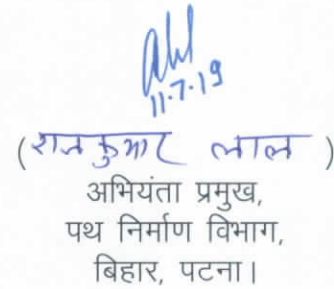 11.7.19
(राजकुमार लाल)
अभियंता प्रमुख,
पथ निर्माण विभाग,
बिहार, पटना।